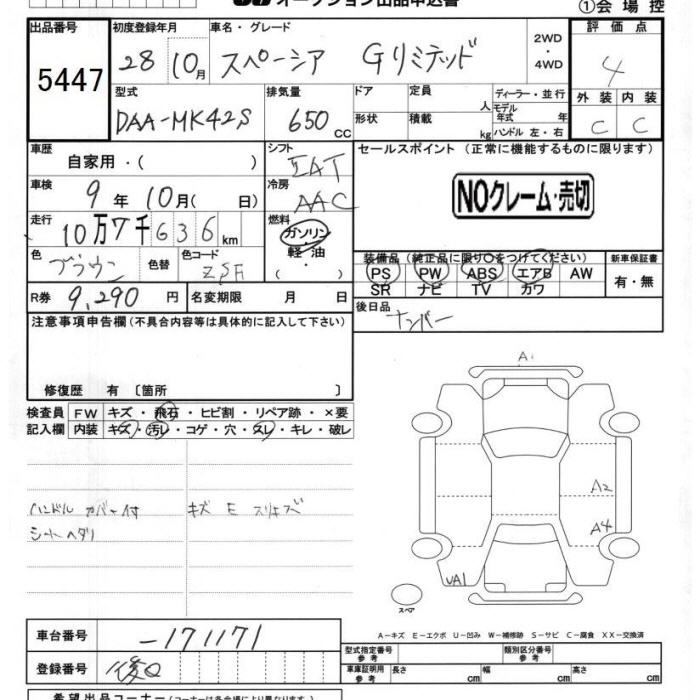 オークション出品申込書
①会場控
出品番号 初度登録年月 車名・グレード 2WD ・ 4WD 評価点
5447 28 10月 スペーシア Gリミテッド 4
型式 排気量 ドア 定員 人 ディーラー・並行 外装 内装
DAA-MK42S 650 CC 形状 積載 kg モデル年式 年 ハンドル 左・右 C C
車歴 自家用・( ) シフト IAT セールスポイント (正常に機能するものに限ります)
車検 9年10月( 日) 冷房 AAC NOクレーム・売切
走行 10万7千636km 燃料 ガソリン・軽油・( )
色 ブラウン 色替 色コード ZSF
装備品 (純正品に限り○をつけてください) 新車保証書
PS PW ABS エアB AW 有・無
SR ナビ TV カワ
R券 9,290円 名変期限 月 日 後日品 ナンバー
注意事項申告欄 (不具合内容等は具体的に記入して下さい)
修復歴 有 〔箇所 〕
検査員 FW キズ・飛石・ヒビ割・リペア跡・×要
記入欄 内装 キズ・汚レ・コゲ・穴・スレ・キレ・破レ
A1
A2
ハンドル カバー付 キズ E スリキズ
シートヘタリ
A4
UA1
スペア
A−キズ E−エクボ U−凹み W−補修跡 S−サビ C−腐食 XX−交換済
車台番号 -171171
型式指定番号 参考 類別区分番号 参考
登録番号 後日
車庫証明用 参考 長さ cm 幅 cm 高さ cm
希望出品コーナー (コーナーは各会場により異なります。)